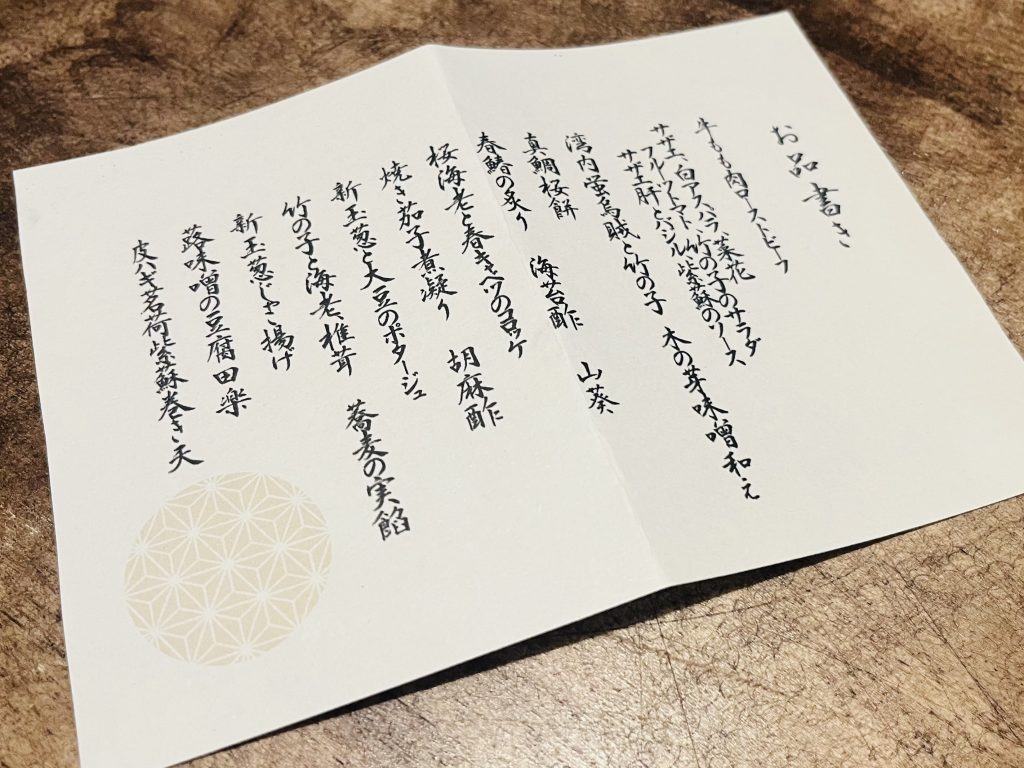 お品書き
牛もも肉ローストビーフ
サザエ、白アスパラ、菜花
フルーツトマト、竹の子のサラダ
サザエ肝とバジル、紫蘇のソース
湾内蛍烏賊と竹の子 木の芽味噌和え
真鯛桜餅 海苔酢 山葵
春鰆の炙り
桜海老と春キャベツのコロッケ
焼き茄子煮凝り 胡麻酢
新玉葱と大豆のポタージュ
竹の子と海老、椎茸 蕎麦の実餡
新玉葱じゃこ揚げ
蕗味噌の豆腐田楽
皮ハギ茗荷紫蘇巻き天